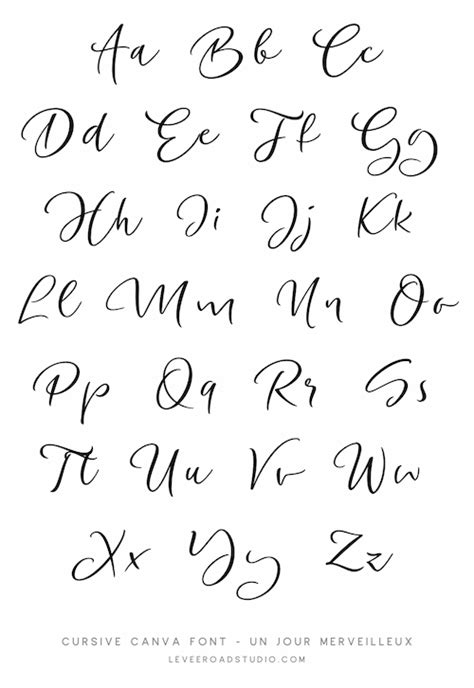 Aa Bb Cc
Dd Ee Ff Gg
Hh Ii Jj Kk
Ll Mm Nn Oo
Pp Qq Rr Ss
Tt Uu Vv Ww
Xx Yy Zz
CURSIVE CANVA FONT - UN JOUR MERVEILLEUX
LEVEEROADSTUDIO.COM